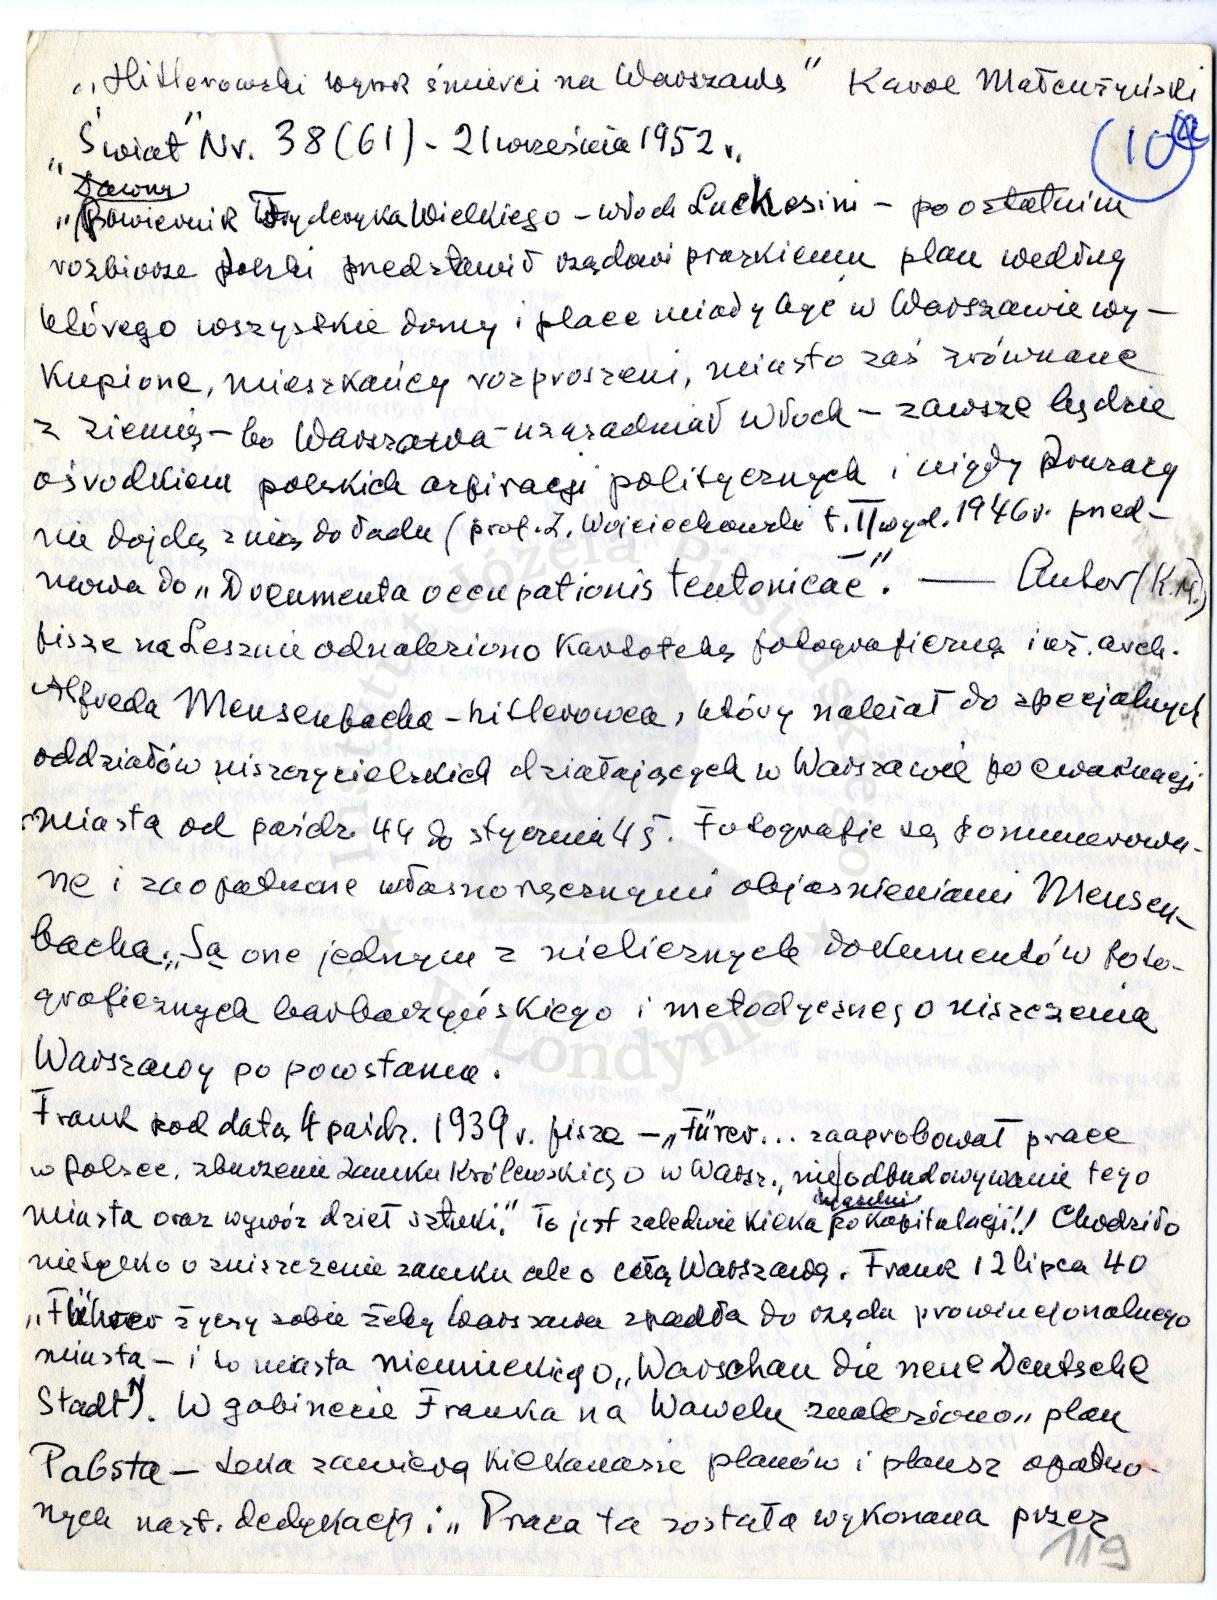 „Hitlerowski wyrok śmierci na Warszawę" Karol Małcużyński
„Świat" Nr. 38 (61) - 21 września 1952 r.
10a
Dawny
„Powiernik Fryderyka Wielkiego – włoch Lucchesini – po ostatnim
rozbiorze Polski przedstawił rządowi pruskiemu plan według
którego wszystkie domy i place miały być w Warszawie wy-
kupione, mieszkańcy rozproszeni, miasto zaś zrównane
z ziemią – bo Warszawa – uzasadniał Włoch – zawsze będzie
ośrodkiem polskich aspiracji politycznych i nigdy Prusacy
nie dojdą z nią do ładu (prof. Z. Wojciechowski t. II wyd. 1946 r. przed-
mowa do „Documenta occupationis teutonicae". — Autor (K.M.)
pisze na Lesznie odnaleziono kartotekę fotograficzną inż. arch.
Alfreda Mensenbacha – hitlerowca, który należał do specjalnych
oddziałów niszczycielskich działających w Warszawie po ewakuacji
miasta od paźdz. 44 do stycznia 45. Fotografie są ponumerowa-
ne i zaopatrzone własnoręcznymi objaśnieniami Mensen-
bacha. „Są one jednym z nielicznych dokumentów foto-
graficznych barbarzyńskiego i metodycznego niszczenia
Warszawy po powstaniu.
Frank pod datą 4 paźdz. 1939 r. pisze – „Fürer... zaaprobował prace
w Polsce, zburzenie Zamku Królewskiego w Warsz., nieodbudowywanie tego
miasta oraz wywóz dzieł sztuki." To jest zaledwie kilka po kapitulacji!! Chodziło
nietylko o zniszczenie zamku ale o całą Warszawę. Frank 12 lipca 40
„Führer życzy sobie żeby Warszawa spadła do rzędu prowincjonalnego
miasta – i to miasta niemieckiego „Warschau die neue Deutsche
Stadt"). W gabinecie Franka na Wawelu znaleziono „plan
Pabsta – teka zawiera kilkanaście planów i plansz opatrzo-
nych nast. dedykacją: „Praca ta została wykonana przez
119
Instytut Józefa Piłsudskiego
w Londynie